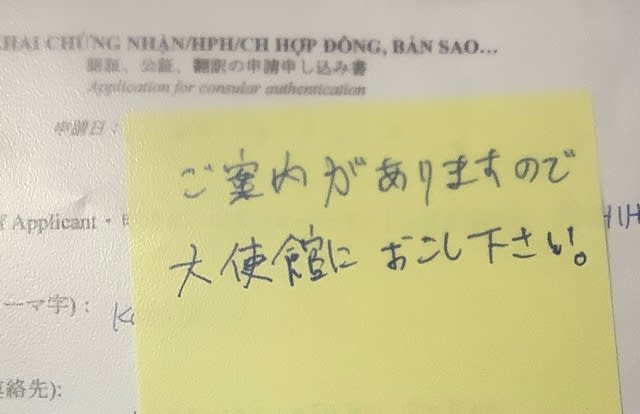 KHAI CHỨNG NHẬN/HPH/CH HỢP ĐỒNG, BẢN SAO...
認証、公証、翻訳の申請申し込み書
Application for consular authentication
申請日：
ご案内がありますので
Applicant・
大使館に おこし下さい。
ーマ字)：
連絡先):